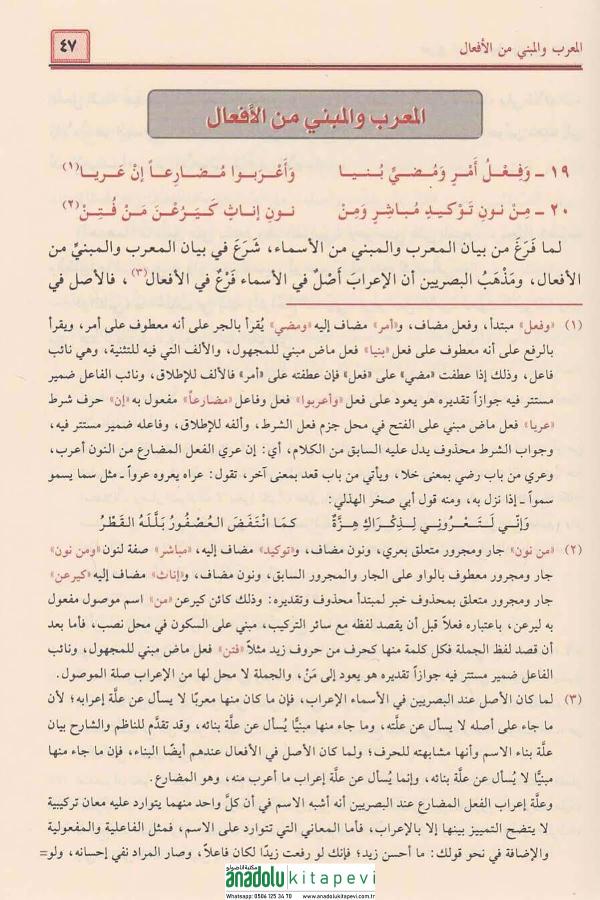 المعرب والمبني من الأفعال
٤٧
المعرب والمبني من الأفعال
١٩ ـ وَفِعْلُ أَمْرٍ وَمُضيٍّ بُنيا وَأَعْرَبوا مُضارِعاً إنْ عَريا(١)
٢٠ ـ مِنْ نونِ تَوْكيدٍ مُباشِرٍ وَمِنْ نونِ إناثٍ كَيَرُعْنَ مَنْ فُتِنْ(٢)
لما فَرَغَ من بيان المعرب والمبني من الأسماء، شَرَعَ في بيان المعرب والمبنيّ من
الأفعال، ومَذْهَبُ البصريين أن الإعرابَ أَصْلٌ في الأسماء فَرْعٌ في الأفعال(٣)، فالأصل في
(١) «وفعل» مبتدأ، وفعل مضاف، و«أمر» مضاف إليه «ومضي» يُقرأ بالجر على أنه معطوف على أمر، ويقرأ
بالرفع على أنه معطوف على فعل «بنيا» فعل ماض مبني للمجهول، والألف التي فيه للتثنية، وهي نائب
فاعل، وذلك إذا عطفت «مضي» على «فعل» فإن عطفته على «أمر» فالألف للإطلاق، ونائب الفاعل ضمير
مستتر فيه جوازاً تقديره هو يعود على فعل «وأعربوا» فعل وفاعل «مضارعاً» مفعول به «إن» حرف شرط
«عريا» فعل ماض مبني على الفتح في محل جزم فعل الشرط، وألفه للإطلاق، وفاعله ضمير مستتر فيه،
وجواب الشرط محذوف يدل عليه السابق من الكلام، أي: إن عري الفعل المضارع من النون أعرب،
وعري من باب رضي بمعنى خلا، ويأتي من باب قعد بمعنى آخر، تقول: عراه يعروه عرواً ـ مثل سما يسمو
سمواً ـ إذا نزل به، ومنه قول أبي صخر الهذلي:
وَإِنّي لَتَعْرُوني لِذِكْرَاكِ هِزَّةٌ كمَا انْتَفَضَ العُصْفُورُ بَلَّلَهُ القَطْرُ
(٢) «من نون» جار ومجرور متعلق بعري، ونون مضاف، و«توكيد» مضاف إليه، «مباشر» صفة لنون «ومن نون»
جار ومجرور معطوف بالواو على الجار والمجرور السابق، ونون مضاف، و«إناث» مضاف إليه «كيرعن»
جار ومجرور متعلق بمحذوف خبر لمبتدأ محذوف وتقديره: وذلك كائن كيرعن «من» اسم موصول مفعول
به ليرعن، باعتباره فعلاً قبل أن يقصد لفظه مع سائر التركيب، مبني على السكون في محل نصب، فأما بعد
أن قصد لفظ الجملة فكل كلمة منها كحرف من حروف زيد مثلاً «فتن» فعل ماض مبني للمجهول، ونائب
الفاعل ضمير مستتر فيه جوازاً تقديره هو يعود إلى مَنْ، والجملة لا محل لها من الإعراب صلة الموصول.
(٣) لما كان الأصل عند البصريين في الأسماء الإعراب، فإن ما كان منها معربًا لا يسأل عن علَّة إعرابه؛ لأن
ما جاء على أصله لا يسأل عن علَّته، وما جاء منها مبنيًّا يُسأل عن علَّة بنائه، وقد تقدَّم للناظم والشارح بيان
علَّة بناء الاسم وأنها مشابهته للحرف؛ ولما كان الأصل في الأفعال عندهم أيضًا البناء، فإن ما جاء منها
مبنيًّا لا يُسأل عن علَّة بنائه، وإنما يُسأل عن علَّة إعراب ما أعرب منه، وهو المضارع.
وعلَّة إعراب الفعل المضارع عند البصريين أنه أشبه الاسم في أن كلَّ واحد منهما يتوارد عليه معان تركيبية
لا يتضح التمييز بينها إلا بالإعراب، فأما المعاني التي تتوارد على الاسم، فمثل الفاعلية والمفعولية
والإضافة في نحو قولك: ما أحسن زيد؛ فإنك لو رفعت زيدًا لكان فاعلاً، وصار المراد نفي إحسانه، ولو=
anadolu kitapevi
Whatsapp: 0506 125 34 70 www.anadolukitapevi.com.tr